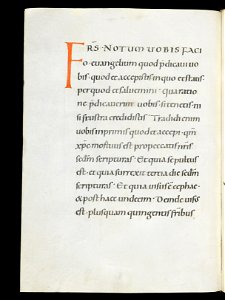 FRS · NOTUM UOBIS FACI
O · euangelium quod p̄dicaui uo
bis · quod et accepistis · in quo et statis ·
per quod et saluemini · qua ratio
ne p̄dicauerim uobis · si tenetis · ni
si frustra credidistis · Tradidi enim
uobis in primis quod et accepi · qm̄
xp̄c mortuus est pro peccatis nr̄is
scd̄m scripturas · Et quia sepultus
est · et quia surrexit tertia die scd̄m
scripturas · Et quia uisus ē cephae ·
& post haec undecim · Deinde uisus
est · plusquam quingentis frībus